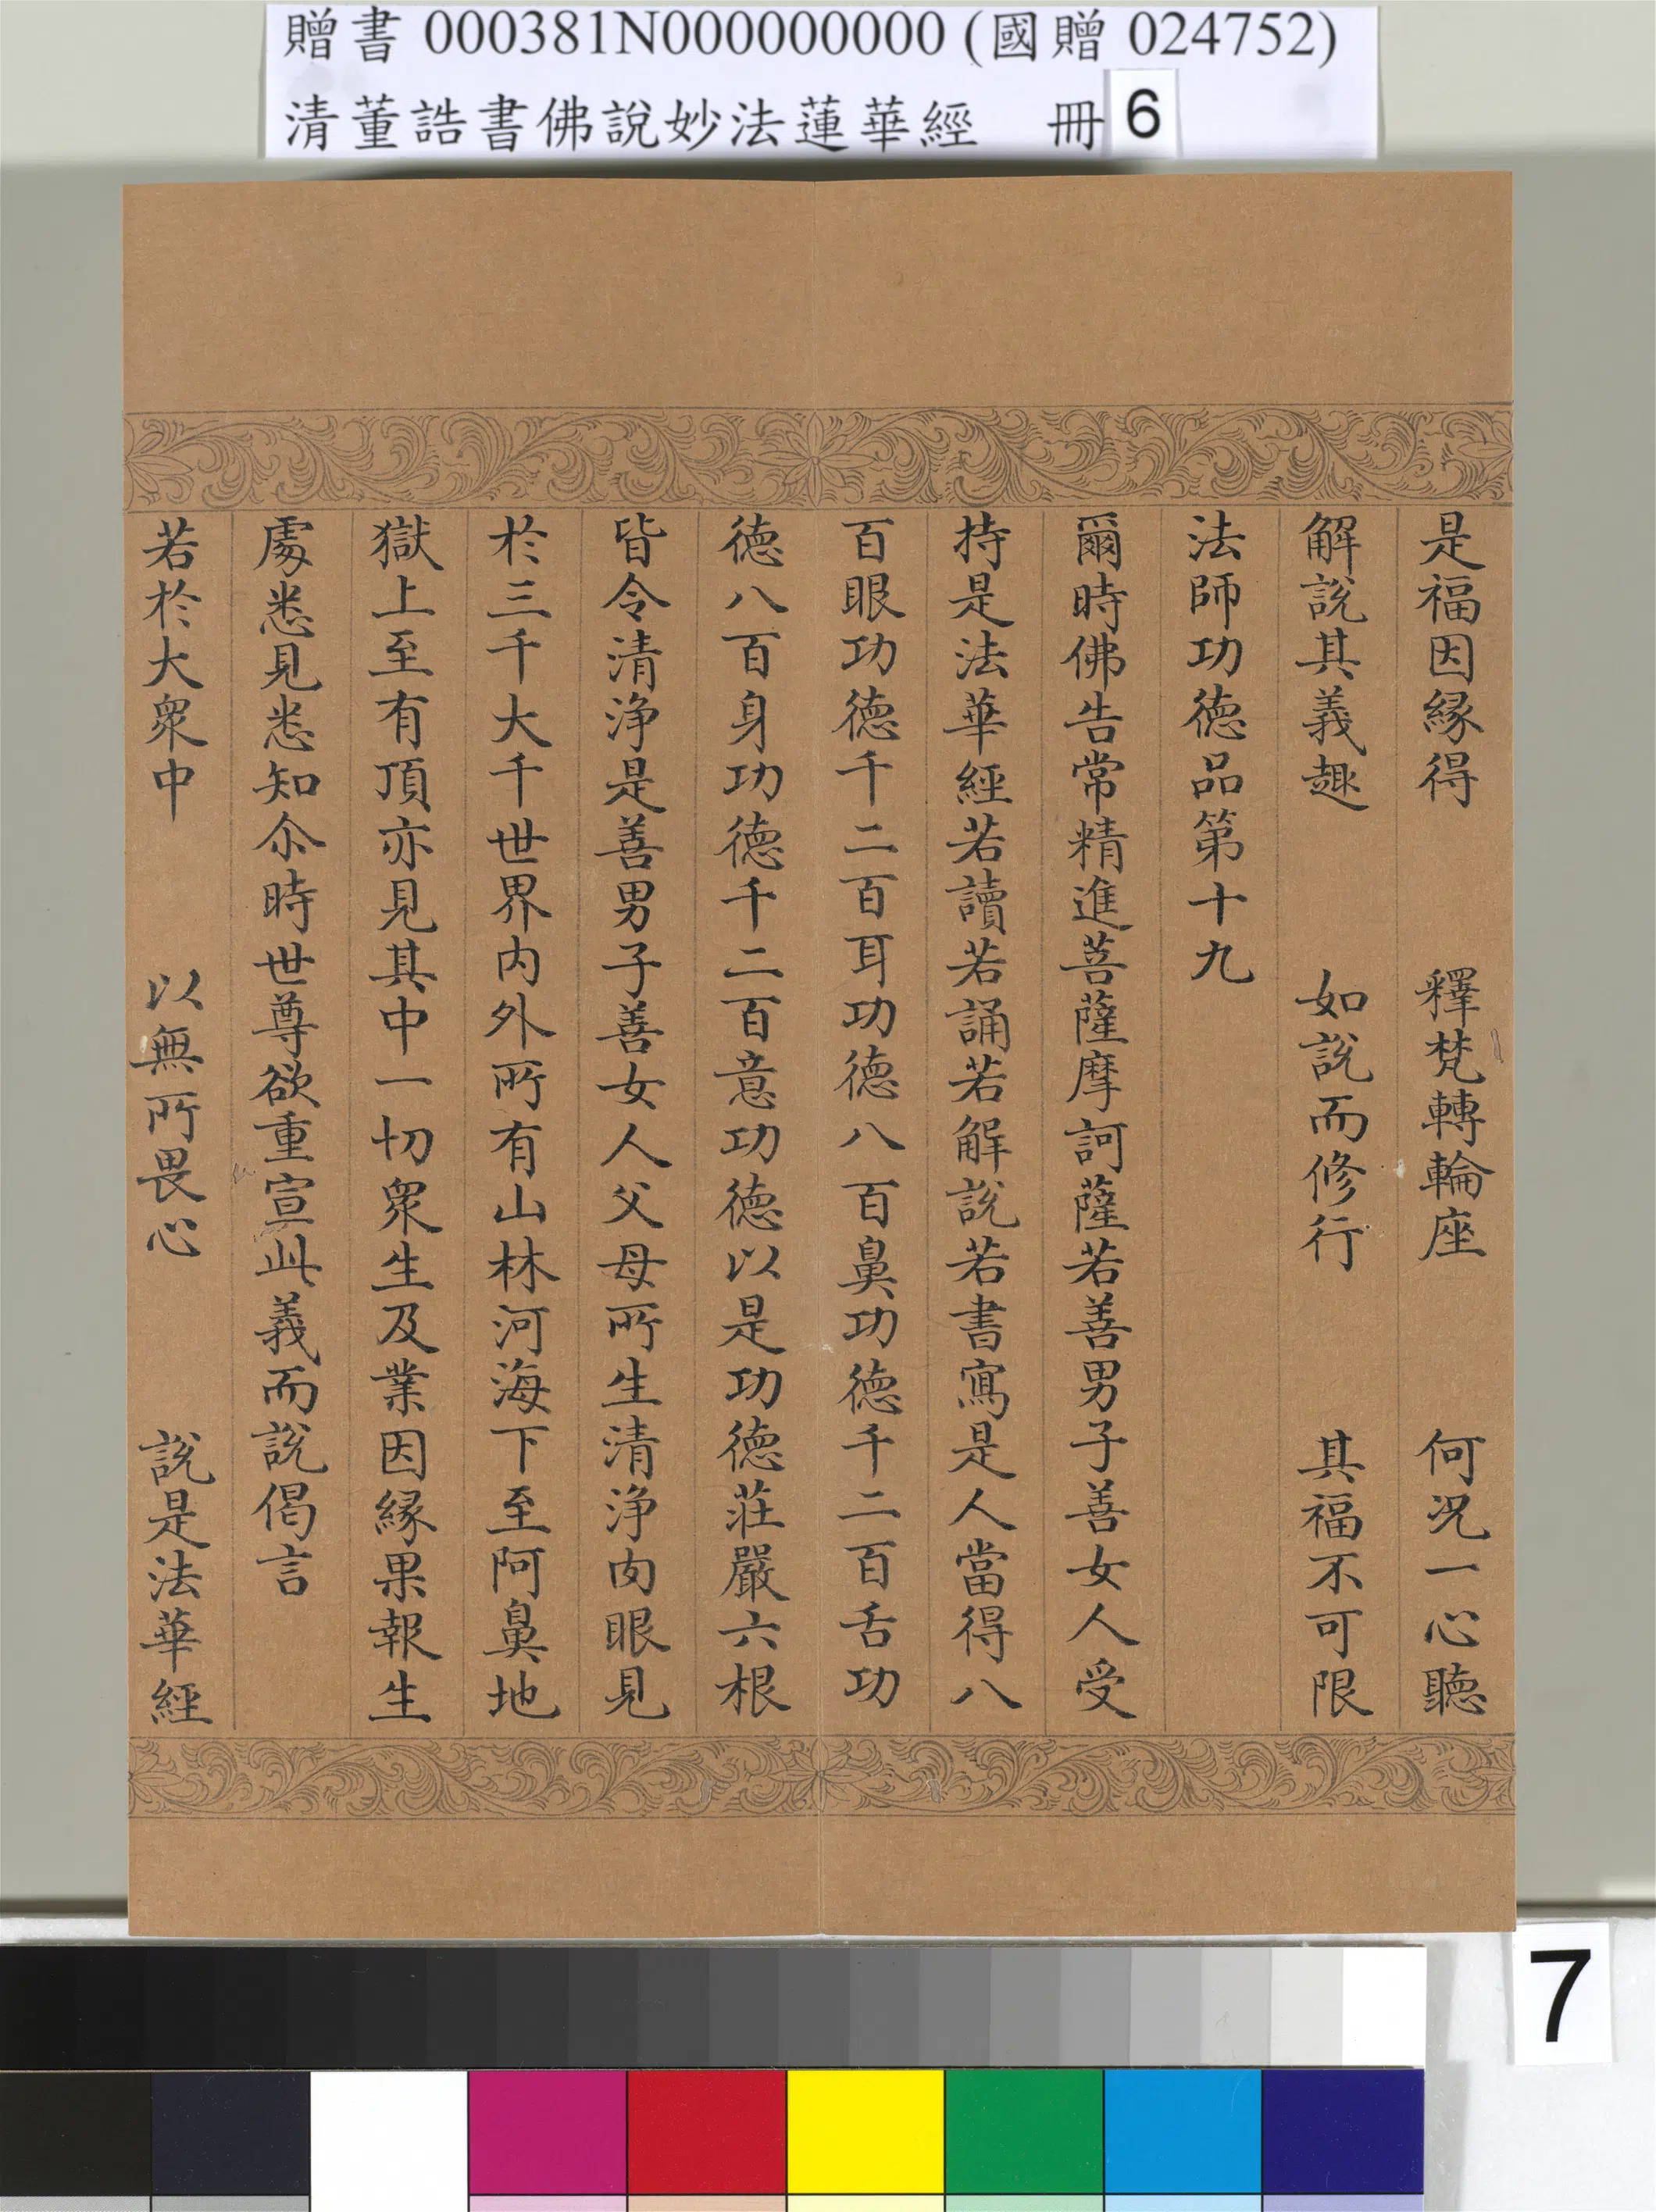 贈書 000381N000000000 (國贈 024752)
清董誥書佛說妙法蓮華經 冊 6
是福因緣得 釋梵轉輪座 何況一心聽
解說其義趣 如說而修行 其福不可限
法師功德品第十九
爾時佛告常精進菩薩摩訶薩若善男子善女人受
持是法華經若讀若誦若解說若書寫是人當得八
百眼功德千二百耳功德八百鼻功德千二百舌功
德八百身功德千二百意功德以是功德莊嚴六根
皆令清淨是善男子善女人父母所生清淨肉眼見
於三千大千世界內外所有山林河海下至阿鼻地
獄上至有頂亦見其中一切眾生及業因緣果報生
處悉見悉知尒時世尊欲重宣此義而說偈言
若於大眾中 以無所畏心 說是法華經
7